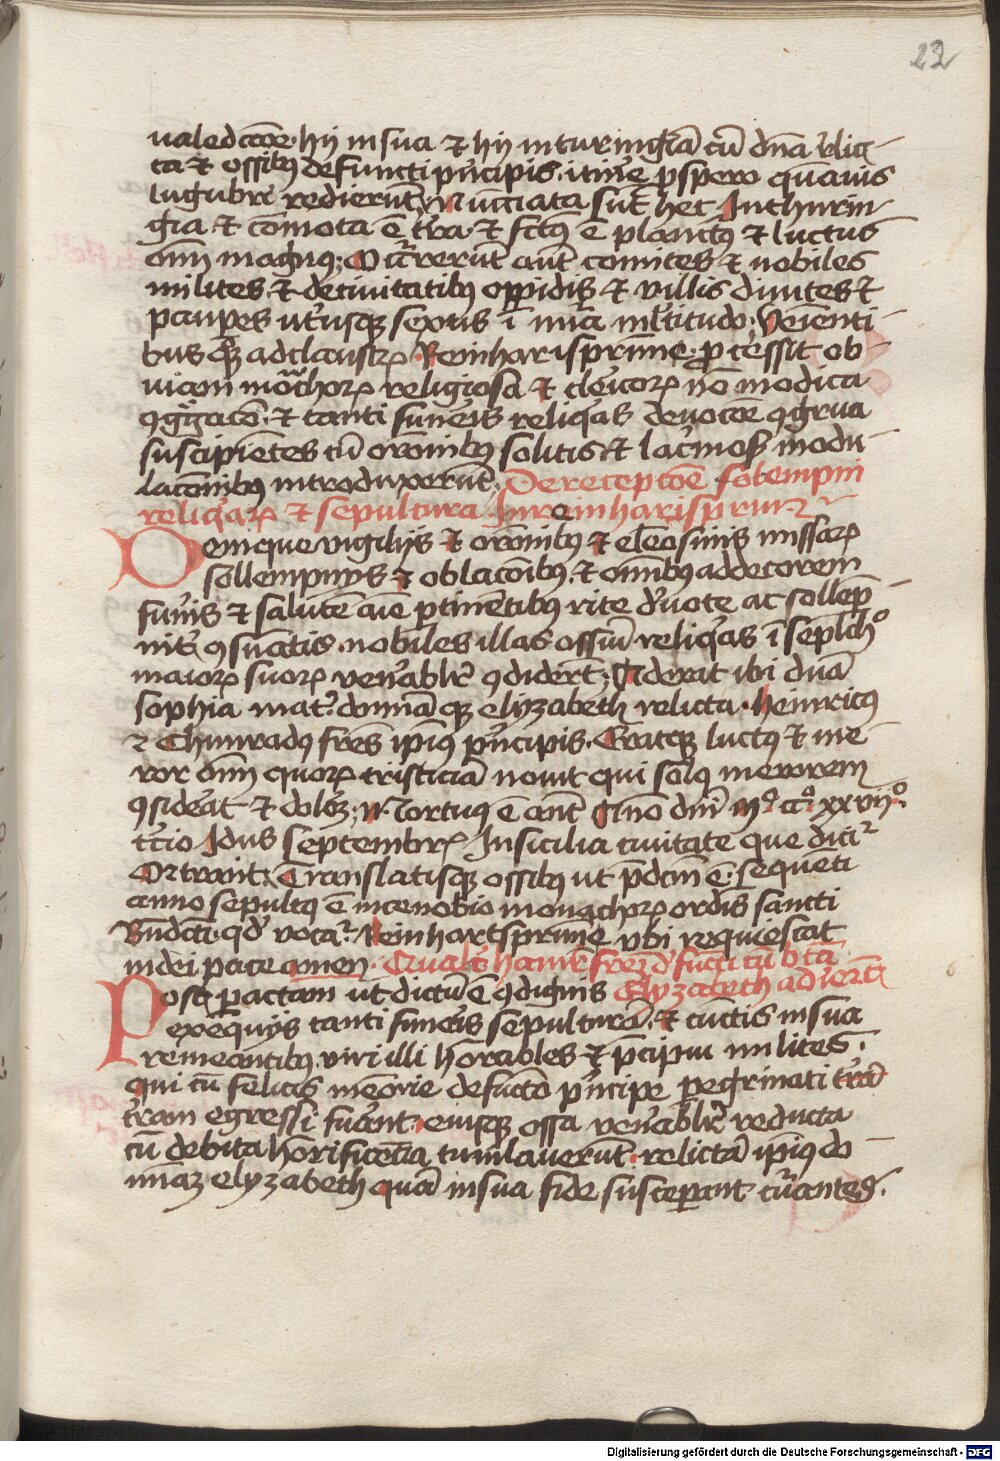 22
valedccōe · hij in sua et hij in turingiā cū dn̄a relic-
ta et ossibus defuncti prīcipis · itinere prospero quamuis
lugubri redierunt · Nuncciata sunt hec In thurin-
gia et cōmota ē terra · et fctūs ē planctus et luctus
omnī magnus · Occurrerunt autē comites et nobiles
milites · et de ciuitatibus oppidis et villis diuites et
paupes utriusque sexus ī nimia multitudo · Venienti-
bus quoque ad claustrum Reinharisprunne · processit ob-
viam monachorum religiosa et clericorum nō modica
congregacō · et tanti funeris reliquias deuocōe congrua
suscipiētes cū orōnibus solitis et lacrimosis modu-
lacōnibus introduxerunt. De recepcōe solempni
reliquiarum et sepultura In reinharisprun
Denique vigilijs et orōnibus et eleosinis missarum
sollempnijs et oblacōnibus · et omnibus ad decorem
funeris et salutē aīe pertinētibus rite deuote ac sollemp-
niter consumatis · nobiles illas ossium reliquias ī sepulchro
maiorum suorum venerabiliter condiderunt · Aderat ibi duā
sophia mater dominā que elyzabeth relicta · heinricus
et Chunradus fratres ipīus prīcipis · Eratque luctus et me-
ror omnī quorum tristiciā nouit qui solus merorem
considerat et dolorem · Mortuus ē autē Anno dnī mº ccº xxviiº
tercio Idus Septembris In sicilia ciuitate que dicitur
Ortrant · Translatisque ossibus ut predcm ē · sequēti
anno sepultus ē in cenobio monachorum ordīs sancti
Bndcti · quod vocatur Reinhartsprunne ubi requiescat
in dei pace amen · Qualiter hanc fratrem defuncti cū beatā
Elyzabeth adierunt
Post peractam ut dictū ē condignis
exequijs tanti funeris sepulturā · et cunctis in sua
remeantibus · viri illi honorabiles et precipui milites ·
qui cū felicis memorie defuncto prīcipe peregrinati terrā
terram egressi fuerant · eiusque ossa venerabiliter reducta
cū debita honorificentia tumlauerunt · relictā ipīus do-
minam elyzabeth quā in sua fide susceperant curantes ·
Digitalisierung gefördert durch die Deutsche Forschungsgemeinschaft - DFG